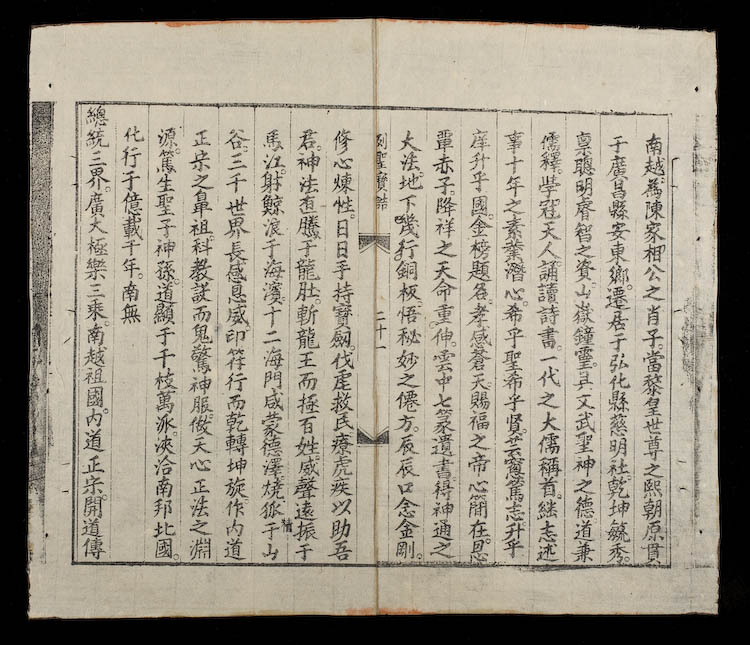 南越爲陳家相公之肖子。當黎皇世尊之熙朝原貫
于廣昌縣安東鄉。遷居于弘化縣慈明社。乾坤毓秀。
禀聰明睿智之資。山嶽鐘靈。具文武聖神之德道兼
儒釋。學冠天人。誦讀詩書。一代之大儒稱首。継志述
事十年之素業潛心。希乎聖希乎賢。芸窗篤志升乎
庠升乎國。金榜題名。孝感蒼天。賜福之帝心簡在。恩
覃赤子。降祥之天命重伸。雲中七篆遺書。得神通之
大法。地下幾行銅板。悟秘妙之僊方。辰辰口念金剛。
列聖寶誥
二十一
修心煉性。日日手持寶劔。伐虐救民療虎疾以助吾
君。神法直騰于龍肚。斬龍王而拯百姓。威聲遠振于
馬江。射鯨浪于海濱。十二海門咸蒙德澤。燒狐于山
谷。三千世界長感恩威。印符行而乾轉坤旋。作内道
正宗之鼻祖。科教設而鬼驚神服。倣天心正法之淵
源。篤生聖子神孫。道顯于千枝萬派。浹洽南邦北國。
化行于億載千年。南無
總統三界。廣大極樂三乘。南越祖國。内道正宗。開道傳